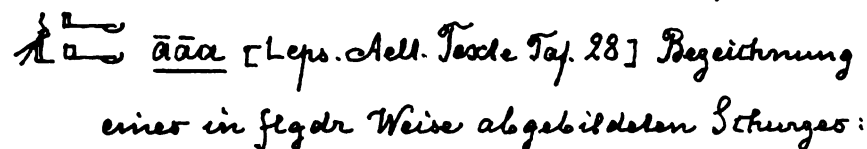 āāa [Leps. Aelt. Texte Taf. 28] Bezeichnung
eines in flgdr Weise abgebildeten Schurzes: